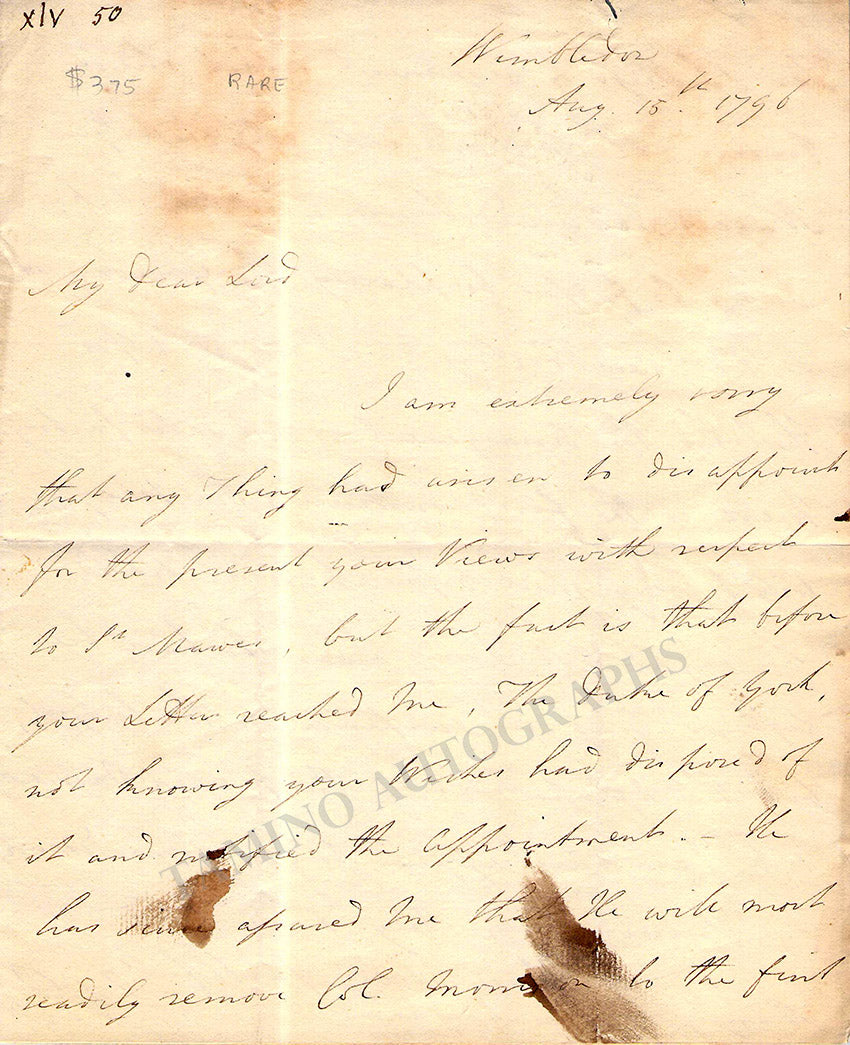 xlv 50
$375 RARE
Wimbledon
Aug. 15th 1796
My dear Lord
I am extremely sorry
that any Thing had arisen to disappoint
for the present your Views with respect
to St Mawes, but the fact is that before
your Letter reached me, The Duke of York,
not knowing your Wishes had disposed of
it and notified the appointment. – He
has since assured me that He will most
readily remove Col. Morrison to the first
TAMINO AUTOGRAPHS